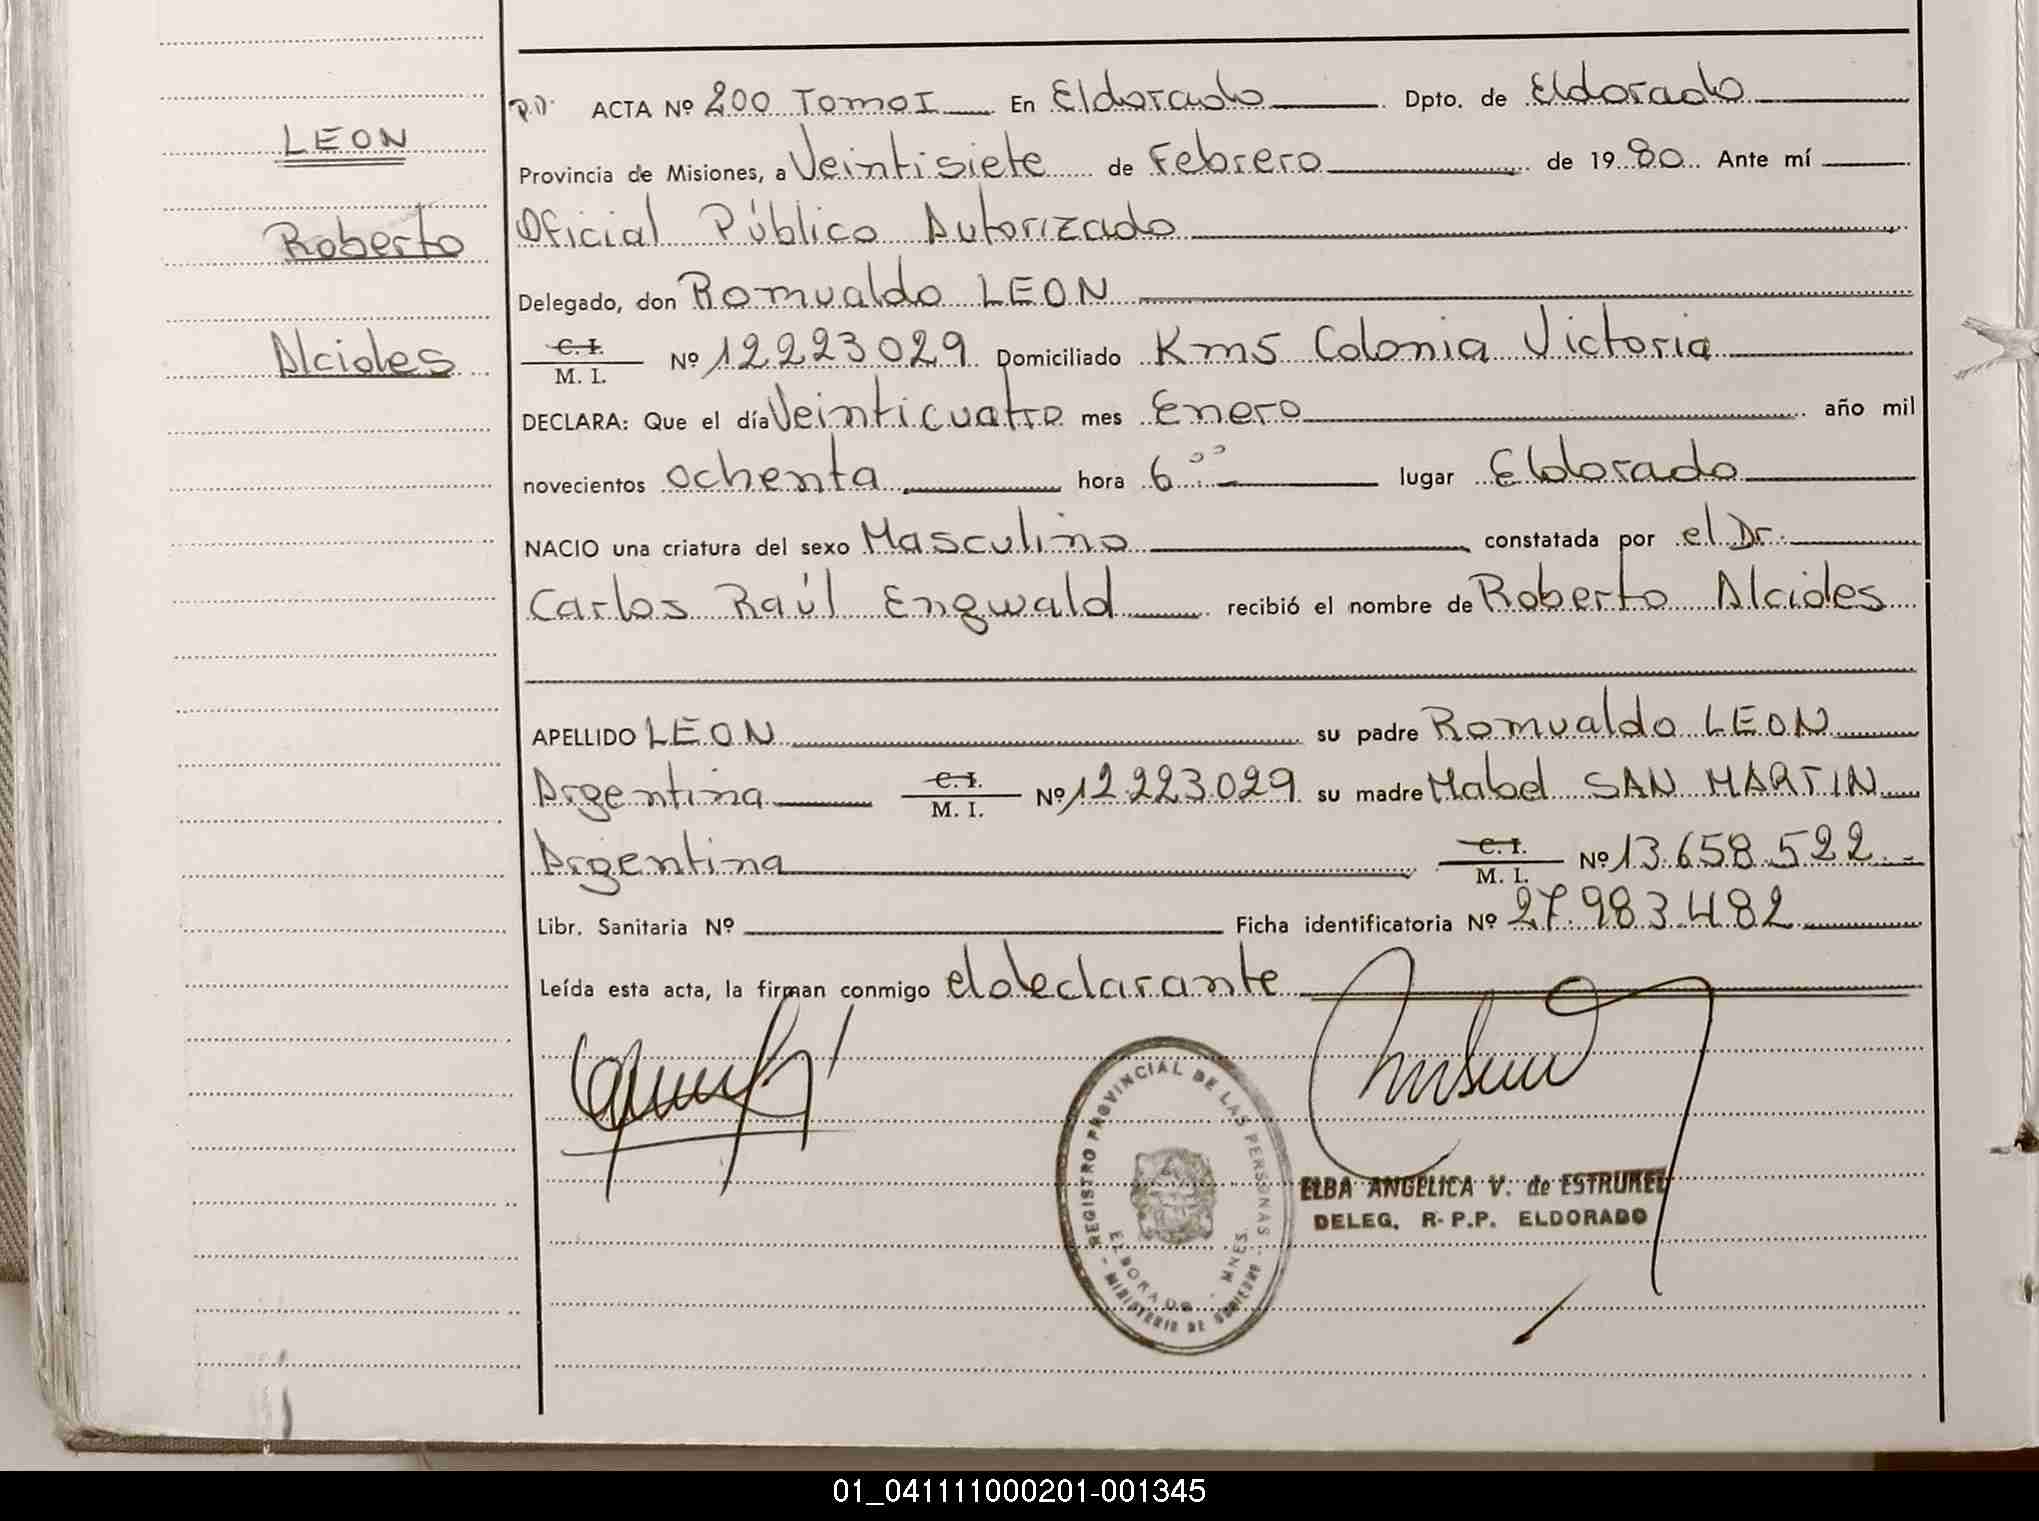 LEON
Roberto
Alcides
P.D. ACTA Nº 200 Tomo I En Eldorado Dpto. de Eldorado
Provincia de Misiones, a Veintisiete de Febrero de 1980 Ante mí
Oficial Público Autorizado
Delegado, don Romualdo LEON
C. I.
M. I. Nº 12223029 Domiciliado Km5 Colonia Victoria
DECLARA: Que el día Veinticuatro mes Enero año mil
novecientos ochenta hora 6 00 lugar Eldorado
NACIO una criatura del sexo Masculino constatada por el Dr.
Carlos Raúl Engwald recibió el nombre de Roberto Alcides
APELLIDO LEON su padre Romualdo LEON
Argentina C. I. M. I. Nº 12223029 su madre Mabel SAN MARTIN
Argentina C. I. M. I. Nº 13.658.522
Libr. Sanitaria Nº Ficha identificatoria Nº 27.983.482
Leída esta acta, la firman conmigo el declarante
REGISTRO PROVINCIAL DE LAS PERSONAS
ELDORADO - MNES.
- MINISTERIO DE GOBIERNO -
ELBA ANGELICA V. de ESTRUKEL
DELEG. R-P.P. ELDORADO
01_041111000201-001345